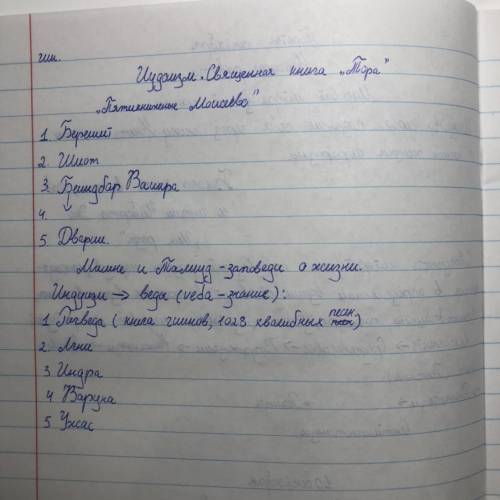 гии.
Иудаизм. Священная книга „Тора"
„Пятикнижье Моисеево"
1. Берешит
2. Шмот
3. Бемидбар Ваикра
4. ↓
5. Дварим.
Мишне и Талмуд - заповеди о жизни.
Индуизм → веды (veda - знание):
1 Ригведа (книга гимнов, 1028 хвалебных песен)
2. Агни
3. Индра
4. Варуна
5. Ужас